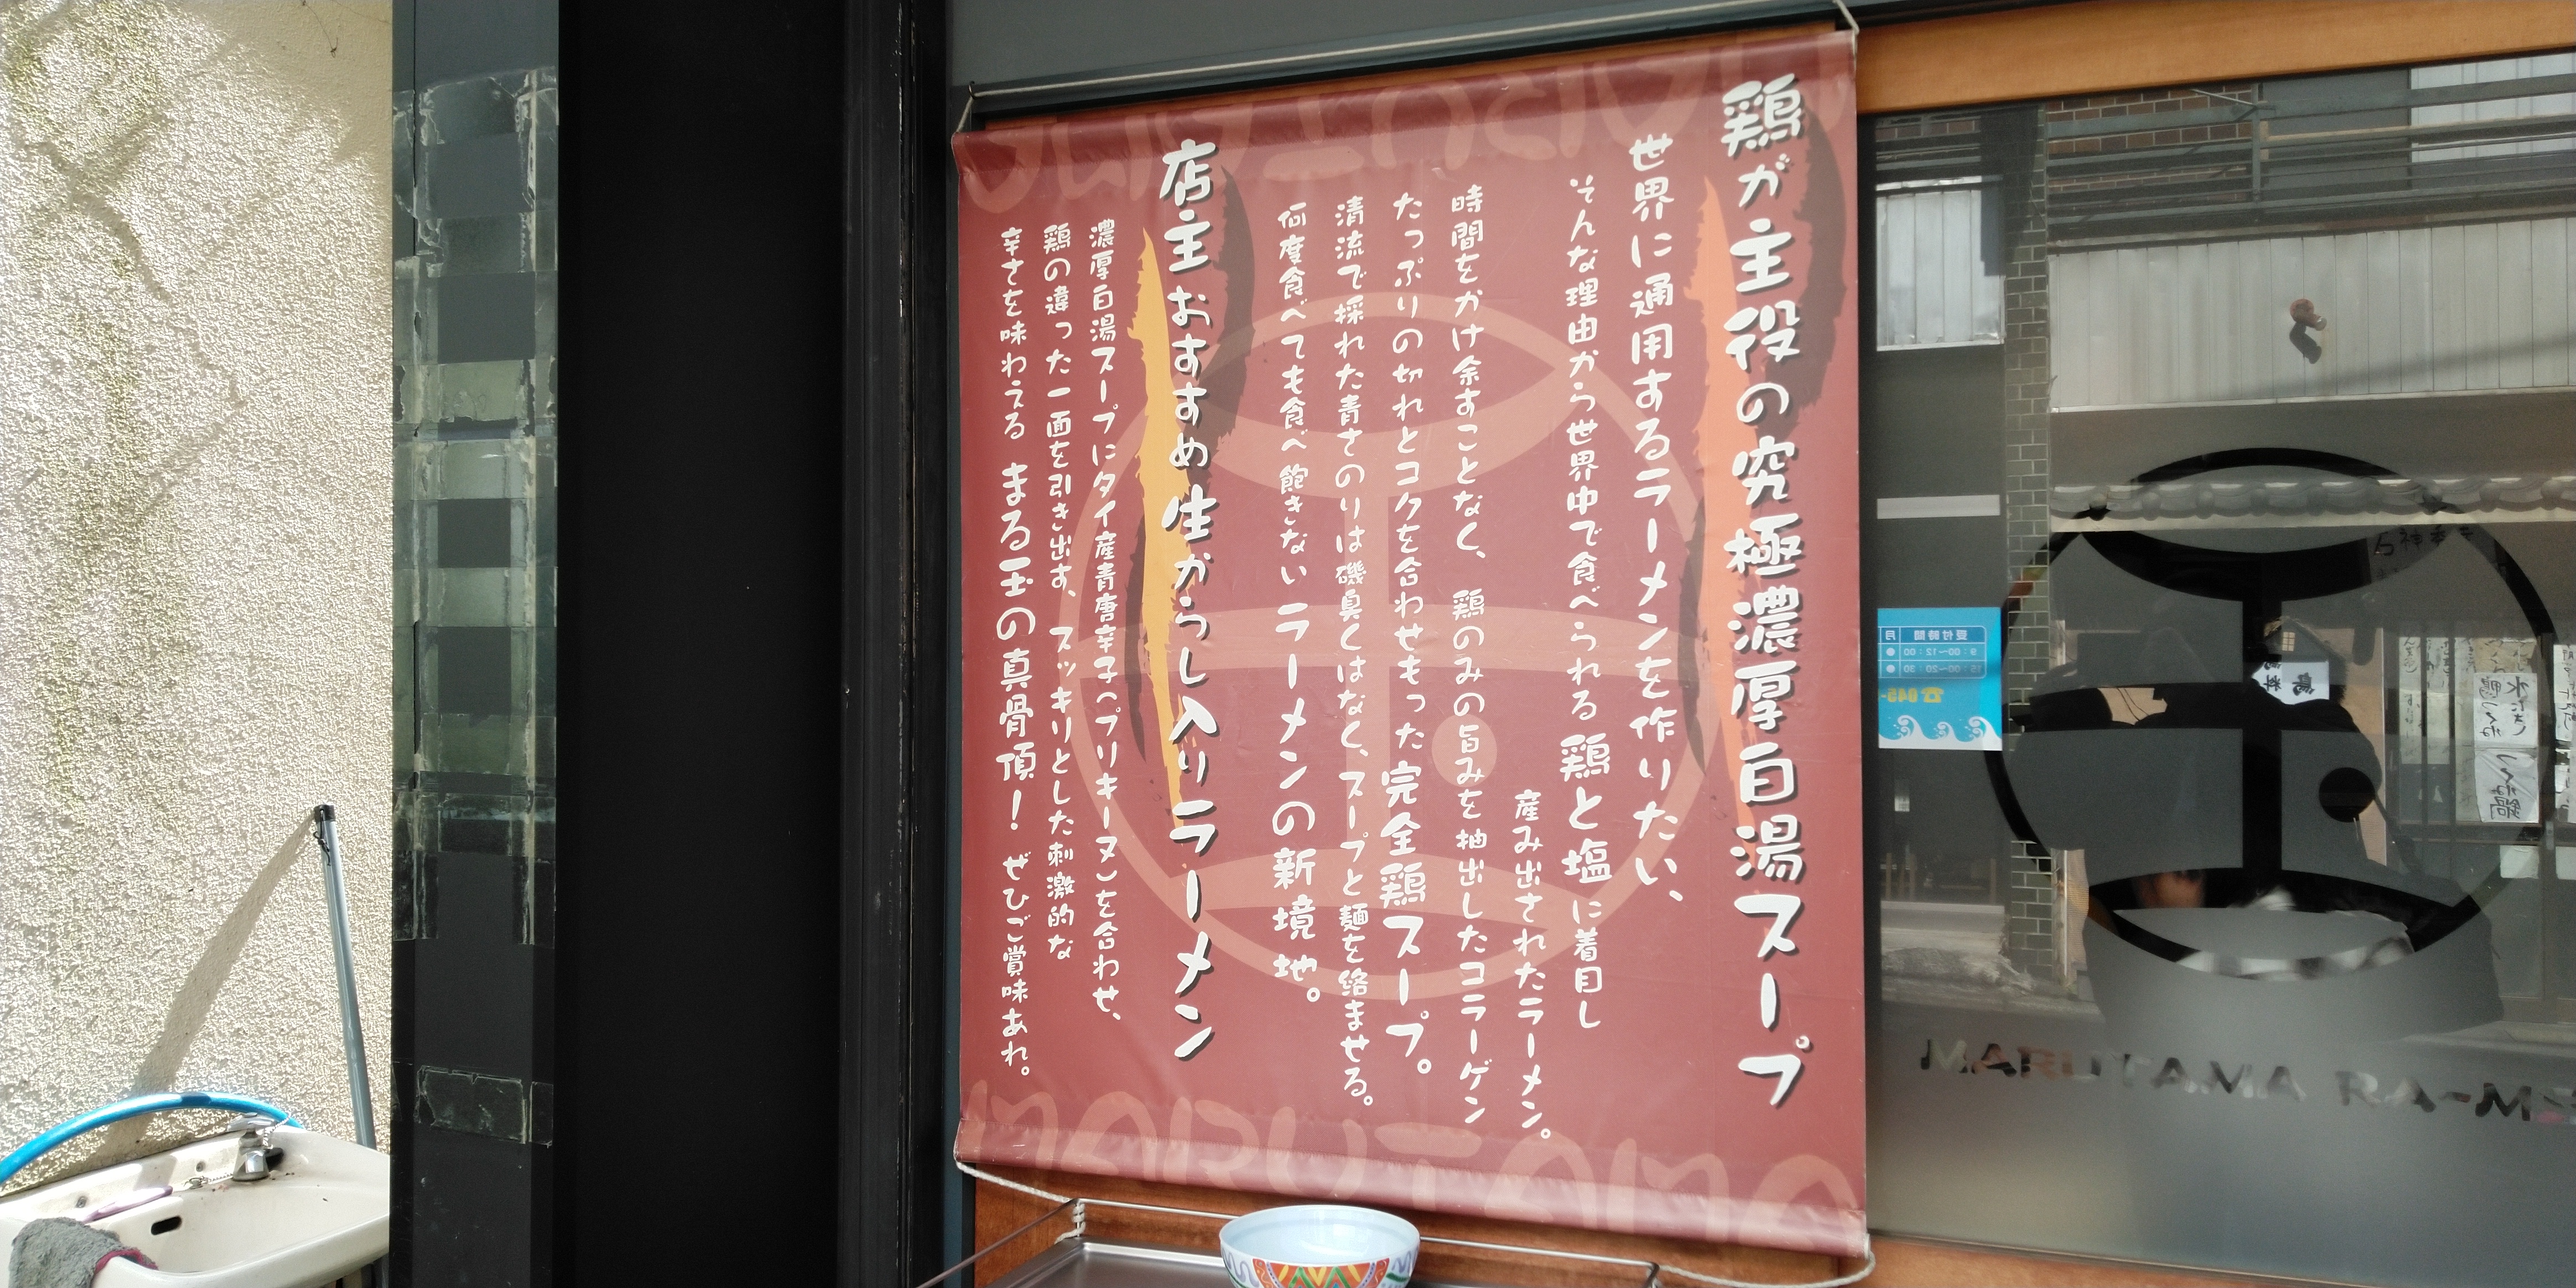 鶏が主役の究極濃厚白湯スープ
世界に通用するラーメンを作りたい、
そんな理由から世界中で食べられる鶏と塩に着目し
産み出されたラーメン。
時間をかけ余すことなく、鶏のみの旨みを抽出したコラーゲン
たっぷりの切れとコクを合わせもった完全鶏スープ。
清流で採れた青さのりは磯臭くはなく、スープと麺を絡ませる。
何度食べても食べ飽きないラーメンの新境地。
店主おすすめ生からし入りラーメン
濃厚白湯スープにタイ産青唐辛子(プリキーヌ)を合わせ、
鶏の違った一面を引き出す、スッキリとした刺激的な
辛さを味わえる まる玉の真骨頂! ぜひご賞味あれ。
MARUTAMA
MARUTAMA
玉
MARUTAMA RA-ME
受付時間
月
9:00~12:00
15:00~20:30